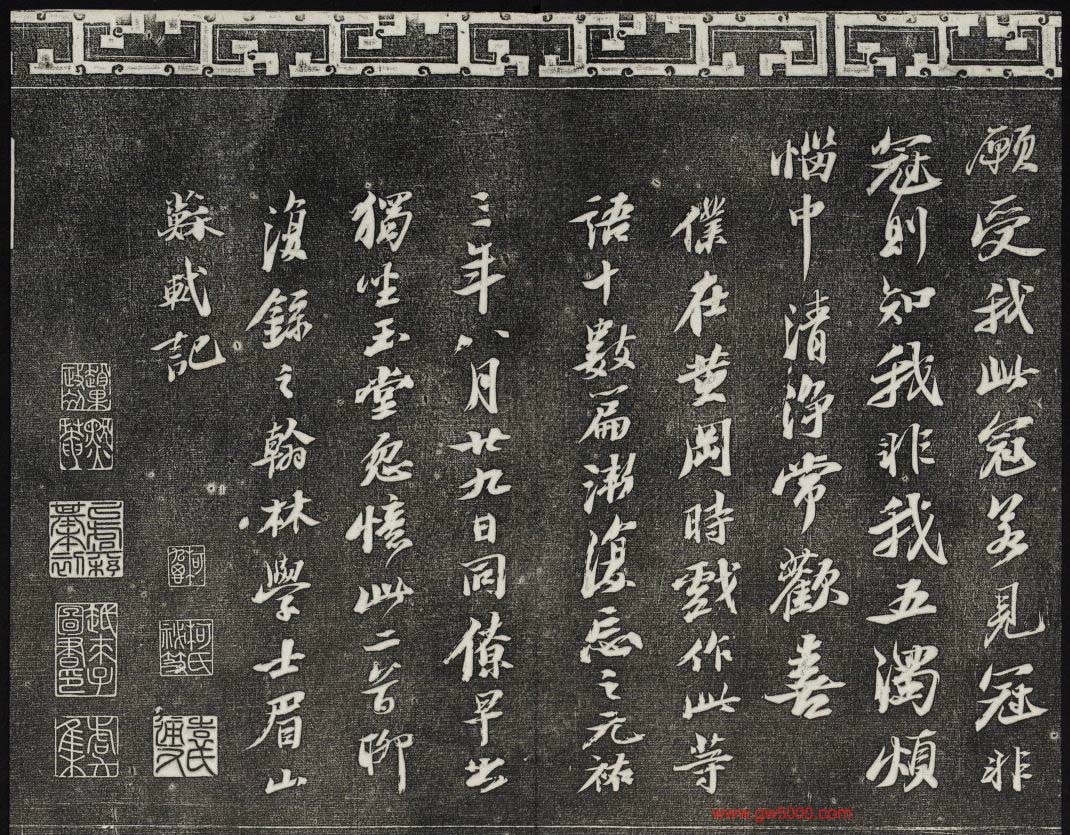 願受我此冠若見冠非
冠則知我非我五濁煩
惱中清淨常歡喜
僕在黃岡時戲作此等
語十數篇漸復忘之元祐
三年八月廿九日同僚早出
獨坐玉堂忽憶此二首聊
復錄之翰林學士眉山
蘇軾記
柯氏
袁氏
圖書印
虞集
www.gw5000.com